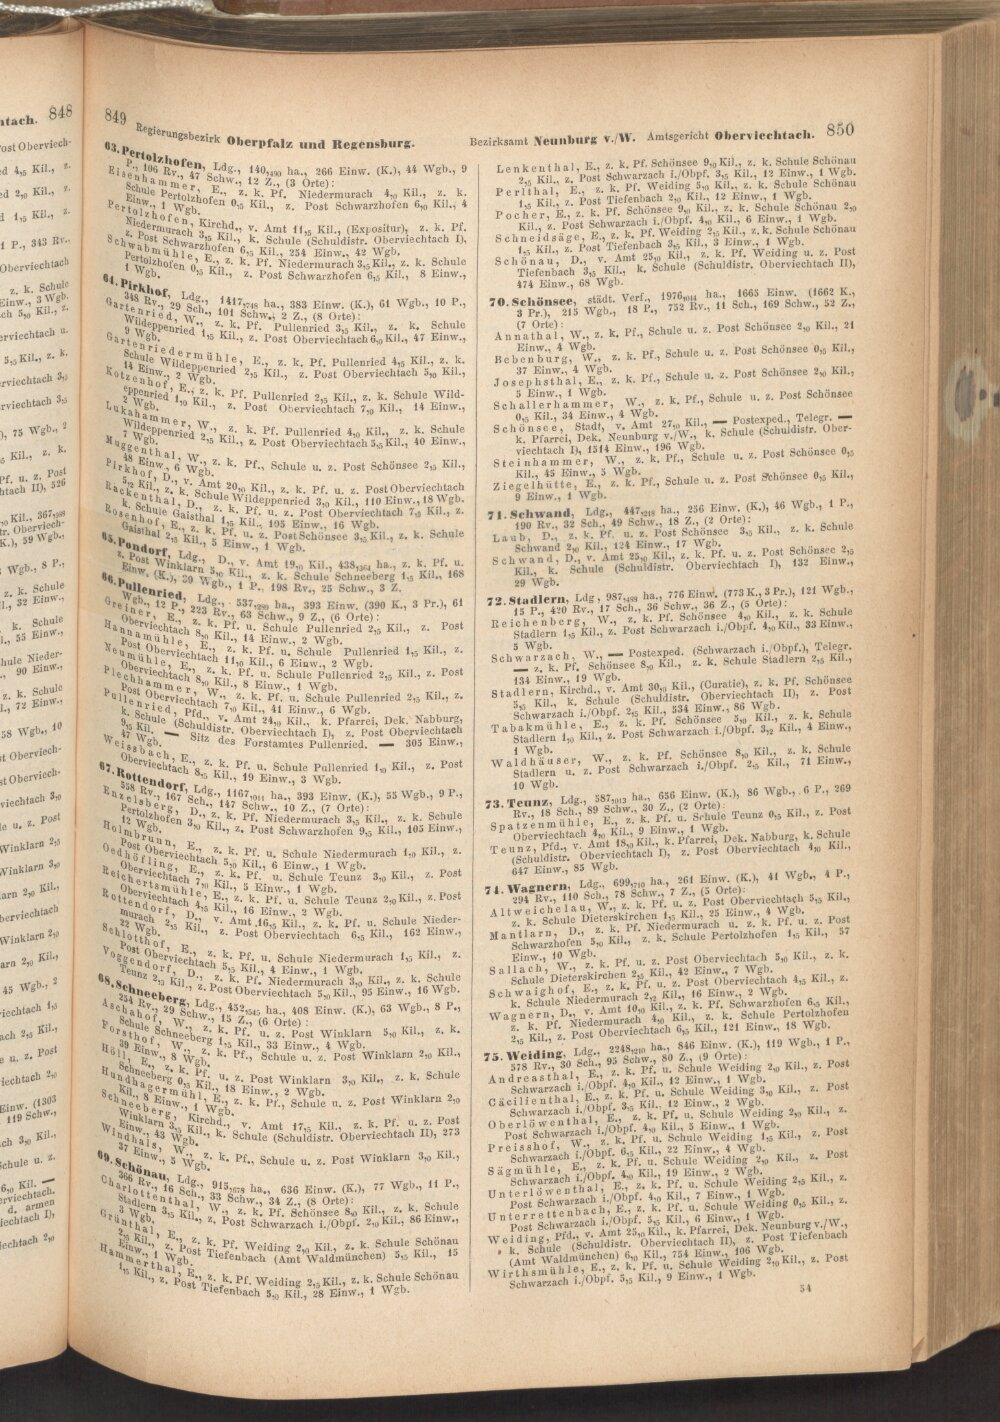 849 Regierungsbezirk Oberpfalz und Regensburg.
63. Pertolzhofen, Ldg., 140,490 ha., 266 Einw. (K.), 44 Wgb., 9
P., 106 Rv., 47 Schw., 12 Z., (3 Orte):
Eisenhammer, E., z. k. Pf. Niedermurach 4,0 Kil., z. k.
Schule Pertolzhofen 0,5 Kil., z. Post Schwarzhofen 6,0 Kil., 4
Einw., 1 Wgb.
Pertolzhofen, Kirchd., v. Amt 11,5 Kil., (Expositur), z. k. Pf.
Niedermurach 3,5 Kil., k. Schule (Schuldistr. Oberviechtach I),
z. Post Schwarzhofen 6,5 Kil., 254 Einw., 42 Wgb.
Schwabmühle, E., z. k. Pf. Niedermurach 3,5 Kil., z. k. Schule
Pertolzhofen 0,5 Kil., z. Post Schwarzhofen 6,5 Kil., 8 Einw.,
1 Wgb.
64. Pirkhof, Ldg., 1417,748 ha., 383 Einw. (K.), 61 Wgb., 10 P.,
348 Rv., 29 Sch., 101 Schw., 2 Z., (8 Orte):
Gartenried, W., z. k. Pf. Pullenried 3,5 Kil., z. k. Schule
Wildeppenried 1,5 Kil., z. Post Oberviechtach 6,0 Kil., 47 Einw.,
9 Wgb.
Gartenriedermühle, E., z. k. Pf. Pullenried 4,5 Kil., z. k.
Schule Wildeppenried 2,5 Kil., z. Post Oberviechtach 5,0 Kil.,
14 Einw., 2 Wgb.
Kotzenhof, E., z. k. Pf. Pullenried 2,5 Kil., z. k. Schule Wild-
eppenried 1,0 Kil., z. Post Oberviechtach 7,0 Kil., 14 Einw.,
2 Wgb.
Lukahammer, W., z. k. Pf. Pullenried 4,0 Kil., z. k. Schule
Wildeppenried 2,5 Kil., z. Post Oberviechtach 5,5 Kil., 40 Einw.,
7 Wgb.
Muggenthal, W., z. k. Pf., Schule u. z. Post Schönsee 2,5 Kil.,
48 Einw., 6 Wgb.
Pirkhof, D., v. Amt 20,0 Kil., z. k. Pf. u. z. Post Oberviechtach
5,2 Kil., z. k. Schule Wildeppenried 3,0 Kil., 110 Einw., 18 Wgb.
Rackenthal, D., z. k. Pf. u. z. Post Oberviechtach 7,5 Kil., z.
k. Schule Gaisthal 1,5 Kil., 105 Einw., 16 Wgb.
Rosenhof, E., z. k. Pf. u. z. Post Schönsee 3,5 Kil., z. k. Schule
Gaisthal 2,5 Kil., 5 Einw., 1 Wgb.
65. Pondorf, Ldg., D., v. Amt 19,0 Kil., 438,1364 ha., z. k. Pf. u.
z. Post Winklarn 5,0 Kil., z. k. Schule Schneeberg 1,5 Kil., 168
Einw. (K.), 30 Wgb., 1 P., 198 Rv., 25 Schw., 3 Z.
66. Pullenried, Ldg., 537,280 ha., 393 Einw. (390 K., 3 Pr.), 61
Wgb., 12 P., 223 Rv., 63 Schw., 9 Z., (6 Orte):
Greiner, E., z. k. Pf. u. Schule Pullenried 2,5 Kil., z. Post
Oberviechtach 8,0 Kil., 14 Einw., 2 Wgb.
Hannamühle, E., z. k. Pf. u. Schule Pullenried 1,5 Kil., z.
Post Oberviechtach 11,0 Kil., 6 Einw., 2 Wgb.
Neumühle, E., z. k. Pf. u. Schule Pullenried 2,5 Kil., z. Post
Oberviechtach 8,0 Kil., 8 Einw., 1 Wgb.
Plechhammer, W., z. k. Pf. u. Schule Pullenried 2,5 Kil., z.
Post Oberviechtach 7,0 Kil., 41 Einw., 6 Wgb.
Pullenried, Pfd., v. Amt 24,0 Kil., k. Pfarrei, Dek. Nabburg,
k. Schule (Schuldistr. Oberviechtach I), z. Post Oberviechtach
9,5 Kil. — Sitz des Forstamtes Pullenried. — 305 Einw.,
47 Wgb.
Weissbach, E., z. k. Pf. u. Schule Pullenried 1,0 Kil., z. Post
Oberviechtach 8,5 Kil., 19 Einw., 3 Wgb.
67. Rottendorf, Ldg., 1167,1041 ha., 393 Einw. (K.), 55 Wgb., 9 P.,
558 Rv., 167 Sch., 147 Schw., 10 Z., (7 Orte):
Enzelsberg, D., z. k. Pf. Niedermurach 3,5 Kil., z. k. Schule
Pertolzhofen 3,0 Kil., z. Post Schwarzhofen 9,5 Kil., 105 Einw.,
12 Wgb.
Holmbrunn, E., z. k. Pf. u. Schule Niedermurach 1,0 Kil., z.
Post Oberviechtach 5,0 Kil., 6 Einw., 1 Wgb.
Oedhöfling, E., z. k. Pf. u. Schule Teunz 3,0 Kil., z. Post
Oberviechtach 7,0 Kil., 5 Einw., 1 Wgb.
Reichertsmühle, E., z. k. Pf. u. Schule Teunz 2,0 Kil., z. Post
Oberviechtach 4,5 Kil., 16 Einw., 2 Wgb.
Rottendorf, D., v. Amt 16,5 Kil., z. k. Pf. u. Schule Nieder-
murach 2,5 Kil., z. Post Oberviechtach 6,5 Kil., 162 Einw.,
22 Wgb.
Schlotthof, E., z. k. Pf. u. Schule Niedermurach 1,5 Kil., z.
Post Oberviechtach 5,5 Kil., 4 Einw., 1 Wgb.
Voggendorf, D., z. k. Pf. Niedermurach 3,0 Kil., z. k. Schule
Teunz 2,5 Kil., z. Post Oberviechtach 5,0 Kil., 95 Einw., 16 Wgb.
68. Schneeberg, Ldg., 452,1545 ha., 408 Einw. (K.), 63 Wgb., 8 P.,
254 Rv., 29 Schw., 15 Z., (6 Orte):
Aschahof, W., z. k. Pf. u. z. Post Winklarn 5,0 Kil., z. k.
Schule Schneeberg 1,5 Kil., 33 Einw., 4 Wgb.
Forsthof, W., z. k. Pf., Schule u. z. Post Winklarn 2,0 Kil.,
39 Einw., 8 Wgb.
Höll, E., z. k. Pf. u. z. Post Winklarn 3,0 Kil., z. k. Schule
Schneeberg 0,5 Kil., 18 Einw., 2 Wgb.
Hundhagermühl, E., z. k. Pf., Schule u. z. Post Winklarn 2,0
Kil., 8 Einw., 1 Wgb.
Schneeberg, Kirchd., v. Amt 17,5 Kil., z. k. Pf. u. z. Post
Winklarn 3,5 Kil., k. Schule (Schuldistr. Oberviechtach II), 273
Einw., 43 Wgb.
Windhals, W., z. k. Pf., Schule u. z. Post Winklarn 3,0 Kil.,
37 Einw., 5 Wgb.
69. Schönau, Ldg., 915,1678 ha., 636 Einw. (K.), 77 Wgb., 11 P.,
366 Rv., 16 Sch., 33 Schw., 34 Z., (8 Orte):
Charlottenthal, W., z. k. Pf. Schönsee 8,0 Kil., z. k. Schule
Stadlern 3,5 Kil., z. Post Schwarzach i./Obpf. 2,0 Kil., 86 Einw.,
3 Wgb.
Grünthal, E., z. k. Pf. Weiding 2,0 Kil., z. k. Schule Schönau
2,0 Kil., z. Post Tiefenbach (Amt Waldmünchen) 5,5 Kil., 15
Einw., 1 Wgb.
Hammerthal, E., z. k. Pf. Weiding 2,5 Kil., z. k. Schule Schönau
1,5 Kil., z. Post Tiefenbach 5,0 Kil., 28 Einw., 1 Wgb.
Bezirksamt Neunburg v./W. Amtsgericht Oberviechtach. 850
Lenkenthal, E., z. k. Pf. Schönsee 9,0 Kil., z. k. Schule Schönau
2,5 Kil., z. Post Schwarzach i./Obpf. 3,5 Kil., 12 Einw., 1 Wgb.
Perlthal, E., z. k. Pf. Weiding 5,0 Kil., z. k. Schule Schönau
1,5 Kil., z. Post Tiefenbach 2,0 Kil., 12 Einw., 1 Wgb.
Pocher, E., z. k. Pf. Schönsee 9,0 Kil., z. k. Schule Schönau 2,0
Kil., z. Post Schwarzach i./Obpf. 4,0 Kil., 6 Einw., 1 Wgb.
Schneidsäge, E., z. k. Pf. Weiding 2,5 Kil., z. k. Schule Schönau
1,5 Kil., z. Post Tiefenbach 3,5 Kil., 3 Einw., 1 Wgb.
Schönau, D., v. Amt 25,0 Kil., z. k. Pf. Weiding u. z. Post
Tiefenbach 3,5 Kil., k. Schule (Schuldistr. Oberviechtach II),
474 Einw., 68 Wgb.
70. Schönsee, städt. Verf., 1976,1044 ha., 1665 Einw. (1662 K.,
3 Pr.), 215 Wgb., 18 P., 752 Rv., 11 Sch., 169 Schw., 52 Z.,
(7 Orte):
Annathal, W., z. k. Pf., Schule u. z. Post Schönsee 2,0 Kil., 21
Einw., 4 Wgb.
Bebenburg, W., z. k. Pf., Schule u. z. Post Schönsee 0,5 Kil.,
37 Einw., 4 Wgb.
Josephsthal, E., z. k. Pf., Schule u. z. Post Schönsee 2,0 Kil.,
5 Einw., 1 Wgb.
Schallerhammer, W., z. k. Pf., Schule u. z. Post Schönsee
0,5 Kil., 34 Einw., 4 Wgb.
Schönsee, Stadt, v. Amt 27,0 Kil., — Postexped., Telegr. —
k. Pfarrei, Dek. Neunburg v./W., k. Schule (Schuldistr. Ober-
viechtach I), 1514 Einw., 196 Wgb.
Steinhammer, W., z. k. Pf., Schule u. z. Post Schönsee 0,5
Kil., 45 Einw., 5 Wgb.
Ziegelhütte, E., z. k. Pf., Schule u. z. Post Schönsee 0,5 Kil.,
9 Einw., 1 Wgb.
71. Schwand, Ldg., 447,1248 ha., 256 Einw. (K.), 46 Wgb., 1 P.,
190 Rv., 32 Sch., 49 Schw., 18 Z., (2 Orte):
Laub, D., z. k. Pf. u. z. Post Schönsee 3,5 Kil., z. k. Schule
Schwand 2,0 Kil., 124 Einw., 17 Wgb.
Schwand, D., v. Amt 25,0 Kil., z. k. Pf. u. z. Post Schönsee 2,5
Kil., k. Schule (Schuldistr. Oberviechtach I), 132 Einw.,
29 Wgb.
72. Stadlern, Ldg., 987,1489 ha., 776 Einw. (773 K., 3 Pr.), 121 Wgb.,
15 P., 420 Rv., 17 Sch., 36 Schw., 36 Z., (5 Orte):
Reichenberg, W., z. k. Pf. Schönsee 4,0 Kil., z. k. Schule
Stadlern 1,5 Kil., z. Post Schwarzach i./Obpf. 4,0 Kil., 33 Einw.,
5 Wgb.
Schwarzach, W., — Postexped. (Schwarzach i./Obpf.), Telegr.
— z. k. Pf. Schönsee 8,0 Kil., z. k. Schule Stadlern 2,5 Kil.,
134 Einw., 19 Wgb.
Stadlern, Kirchd., v. Amt 30,0 Kil., (Curatie), z. k. Pf. Schönsee
5,5 Kil., k. Schule (Schuldistr. Oberviechtach II), z. Post
Schwarzach i./Obpf. 2,5 Kil., 534 Einw., 86 Wgb.
Tabakmühle, E., z. k. Pf. Schönsee 5,0 Kil., z. k. Schule
Stadlern 1,0 Kil., z. Post Schwarzach i./Obpf. 3,2 Kil., 4 Einw.,
1 Wgb.
Waldhäuser, W., z. k. Pf. Schönsee 8,0 Kil., z. k. Schule
Stadlern u. z. Post Schwarzach i./Obpf. 2,5 Kil., 71 Einw.,
10 Wgb.
73. Teunz, Ldg., 587,1013 ha., 656 Einw. (K.), 86 Wgb., 6 P., 269
Rv., 18 Sch., 89 Schw., 30 Z., (2 Orte):
Spatzenmühle, E., z. k. Pf. u. Schule Teunz 0,5 Kil., z. Post
Oberviechtach 4,0 Kil., 9 Einw., 1 Wgb.
Teunz, Pfd., v. Amt 18,0 Kil., k. Pfarrei, Dek. Nabburg, k. Schule
(Schuldistr. Oberviechtach I), z. Post Oberviechtach 4,0 Kil.,
647 Einw., 85 Wgb.
74. Wagnern, Ldg., 699,1710 ha., 261 Einw. (K.), 41 Wgb., 4 P.,
294 Rv., 110 Sch., 78 Schw., 7 Z., (5 Orte):
Altweichelau, W., z. k. Pf. u. z. Post Oberviechtach 5,5 Kil.,
z. k. Schule Dieterskirchen 1,5 Kil., 25 Einw., 4 Wgb.
Mantlarn, D., z. k. Pf. Niedermurach u. z. k. Pf. u. z. Post
Schwarzhofen 5,0 Kil., z. k. Schule Pertolzhofen 1,5 Kil., 57
Einw., 10 Wgb.
Sallach, W., z. k. Pf. u. z. Post Oberviechtach 5,0 Kil., z. k.
Schule Dieterskirchen 2,5 Kil., 42 Einw., 7 Wgb.
Schwaighof, E., z. k. Pf. u. z. Post Oberviechtach 4,5 Kil., z.
k. Schule Niedermurach 2,2 Kil., 16 Einw., 2 Wgb.
Wagnern, D., v. Amt 10,0 Kil., z. k. Pf. Schwarzhofen 6,5 Kil.,
z. k. Pf. Niedermurach 4,0 Kil., z. k. Schule Pertolzhofen
2,5 Kil., z. Post Oberviechtach 6,5 Kil., 121 Einw., 18 Wgb.
75. Weiding, Ldg., 2248,1210 ha., 846 Einw. (K.), 119 Wgb., 1 P.,
578 Rv., 30 Sch., 95 Schw., 80 Z., (9 Orte):
Andreasthal, E., z. k. Pf. u. Schule Weiding 2,0 Kil., z. Post
Schwarzach i./Obpf. 4,0 Kil., 12 Einw., 1 Wgb.
Cäcilienthal, E., z. k. Pf. u. Schule Weiding 3,0 Kil., z. Post
Schwarzach i./Obpf. 3,5 Kil., 12 Einw., 2 Wgb.
Oberlöwenthal, E., z. k. Pf. u. Schule Weiding 2,0 Kil., z.
Post Schwarzach i./Obpf. 4,0 Kil., 5 Einw., 1 Wgb.
Preisshof, W., z. k. Pf. u. Schule Weiding 1,5 Kil., z. Post
Schwarzach i./Obpf. 6,5 Kil., 22 Einw., 4 Wgb.
Sägmühle, E., z. k. Pf. u. Schule Weiding 2,0 Kil., z. Post
Schwarzach i./Obpf. 4,0 Kil., 19 Einw., 2 Wgb.
Unterlöwenthal, E., z. k. Pf. u. Schule Weiding 2,5 Kil., z.
Post Schwarzach i./Obpf. 4,0 Kil., 7 Einw., 1 Wgb.
Unterrettenbach, E., z. k. Pf. u. Schule Weiding 0,5 Kil., z.
Post Schwarzach i./Obpf. 5,5 Kil., 6 Einw., 1 Wgb.
Weiding, Pfd., v. Amt 25,0 Kil., k. Pfarrei, Dek. Neunburg v./W.,
k. Schule (Schuldistr. Oberviechtach II), z. Post Tiefenbach
(Amt Waldmünchen) 6,0 Kil., 754 Einw., 106 Wgb.
Wirthsmühle, E., z. k. Pf. u. Schule Weiding 2,0 Kil., z. Post
Schwarzach i./Obpf. 5,5 Kil., 9 Einw., 1 Wgb.
54